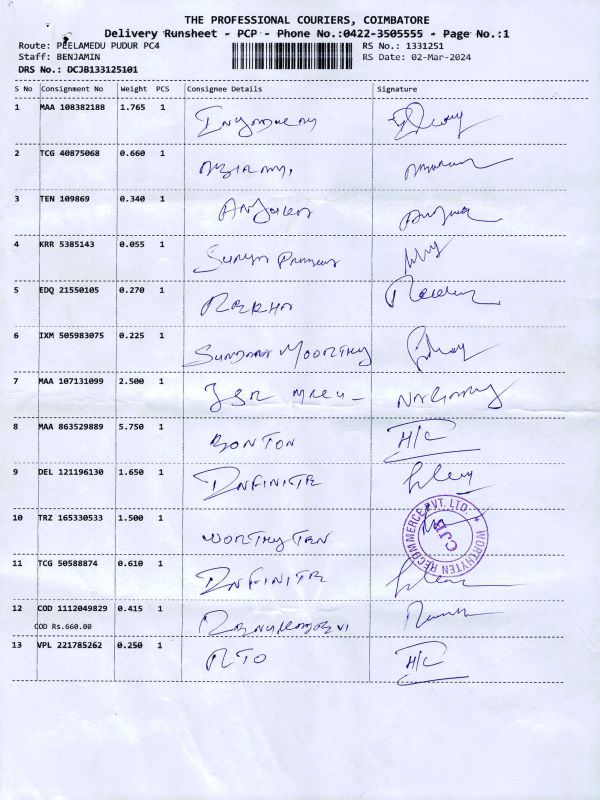 THE PROFESSIONAL COURIERS, COIMBATORE
Delivery Runsheet - PCP - Phone No.:0422-3505555 - Page No.:1
Route: PEELAMEDU PUDUR PC4 RS No.: 1331251
Staff: BENJAMIN RS Date: 02-Mar-2024
DRS No.: DCJB133125101
S No Consignment No Weight PCS Consignee Details Signature
1 MAA 108382188 1.765 1
2 TCG 40875068 0.660 1
3 TEN 109869 0.340 1
4 KRR 5385143 0.055 1 Surya
5 EDQ 21550105 0.270 1 REKHA
6 IXM 505983075 0.225 1 SUNDARA MOORTHY
7 MAA 107131099 2.500 1
8 MAA 863529889 5.750 1 BONTON H/C
9 DEL 121196130 1.650 1 INFINITE
10 TRZ 165330533 1.500 1 WORTHYTEN
WORTHYTEN RECOMMERCE PVT. LTD. * CJB
11 TCG 50588874 0.610 1 INFINITE
12 COD 1112049829 0.415 1
COD Rs.660.00
13 VPL 221785262 0.250 1 RTO H/C